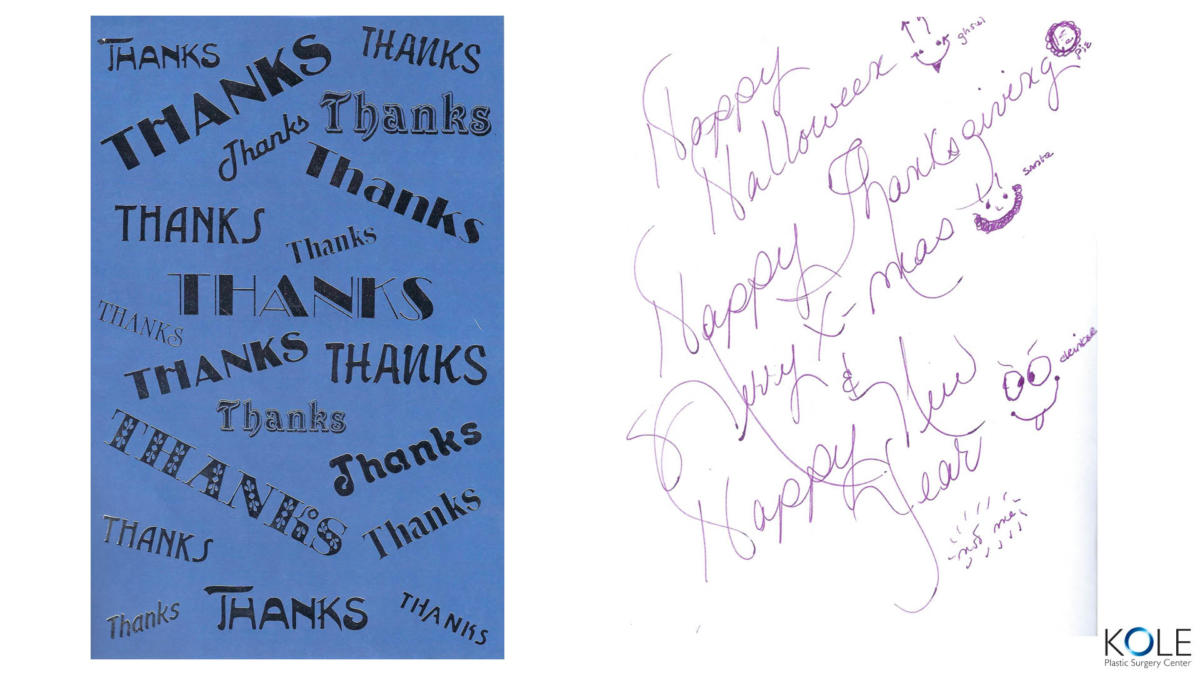 THANKS
THANKS
THANKS
Thanks
Thanks
Thanks
THANKS
Thanks
THANKS
THANKS
THANKS
THANKS
Thanks
THANKS
Thanks
Thanks
THANKS
Thanks
THANKS
THANKS
Happy
Halloween
ghoul
Happy Thanksgiving
pie
Merry X-mas
santa
&
Happy New
Year
drinker
not me
KOLE
Plastic Surgery Center